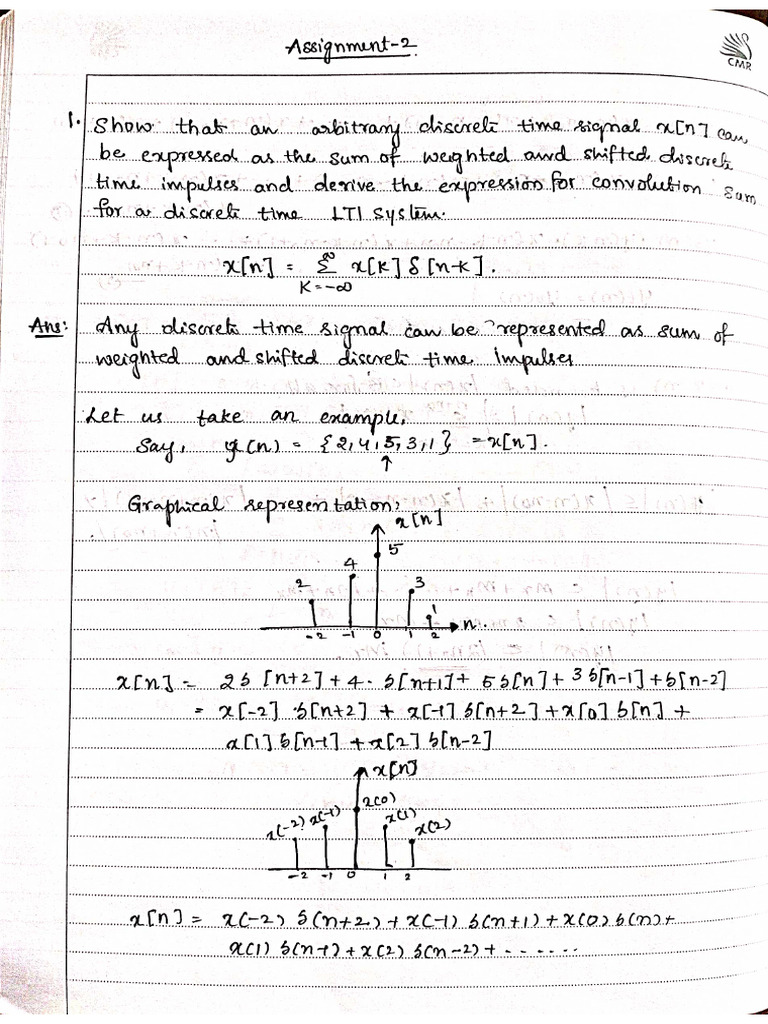 Assignment-2.
CMR
1. Show that an arbitrary discrete time signal x[n] can
be expressed as the sum of weighted and shifted discrete
time impulses and derive the expression for convolution sum
for a discrete time LTI system.
x[n] = ∞ΣK=-∞ x[k] δ[n-k].
Ans: Any discrete time signal can be represented as sum of
weighted and shifted discrete time impulses
Let us take an example,
Say, x(n) = {2,4,5,3,1} = x[n].
↑
Graphical representation:
x[n]
5
4
2 3
1
-2 -1 0 1 2 n.
x[n] = 2δ[n+2] + 4.δ[n+1] + 5δ[n] + 3δ[n-1] + δ[n-2]
= x[-2] δ[n+2] + x[-1] δ[n+2] + x[0] δ[n] +
x[1] δ[n-1] + x[2] δ[n-2]
x[n]
x(0)
x(-2) x(-1) x(1) x(2)
-2 -1 0 1 2
x[n] = x(-2) δ(n+2) + x(-1) δ(n+1) + x(0) δ(n) +
x(1) δ(n-1) + x(2) δ(n-2) + .......